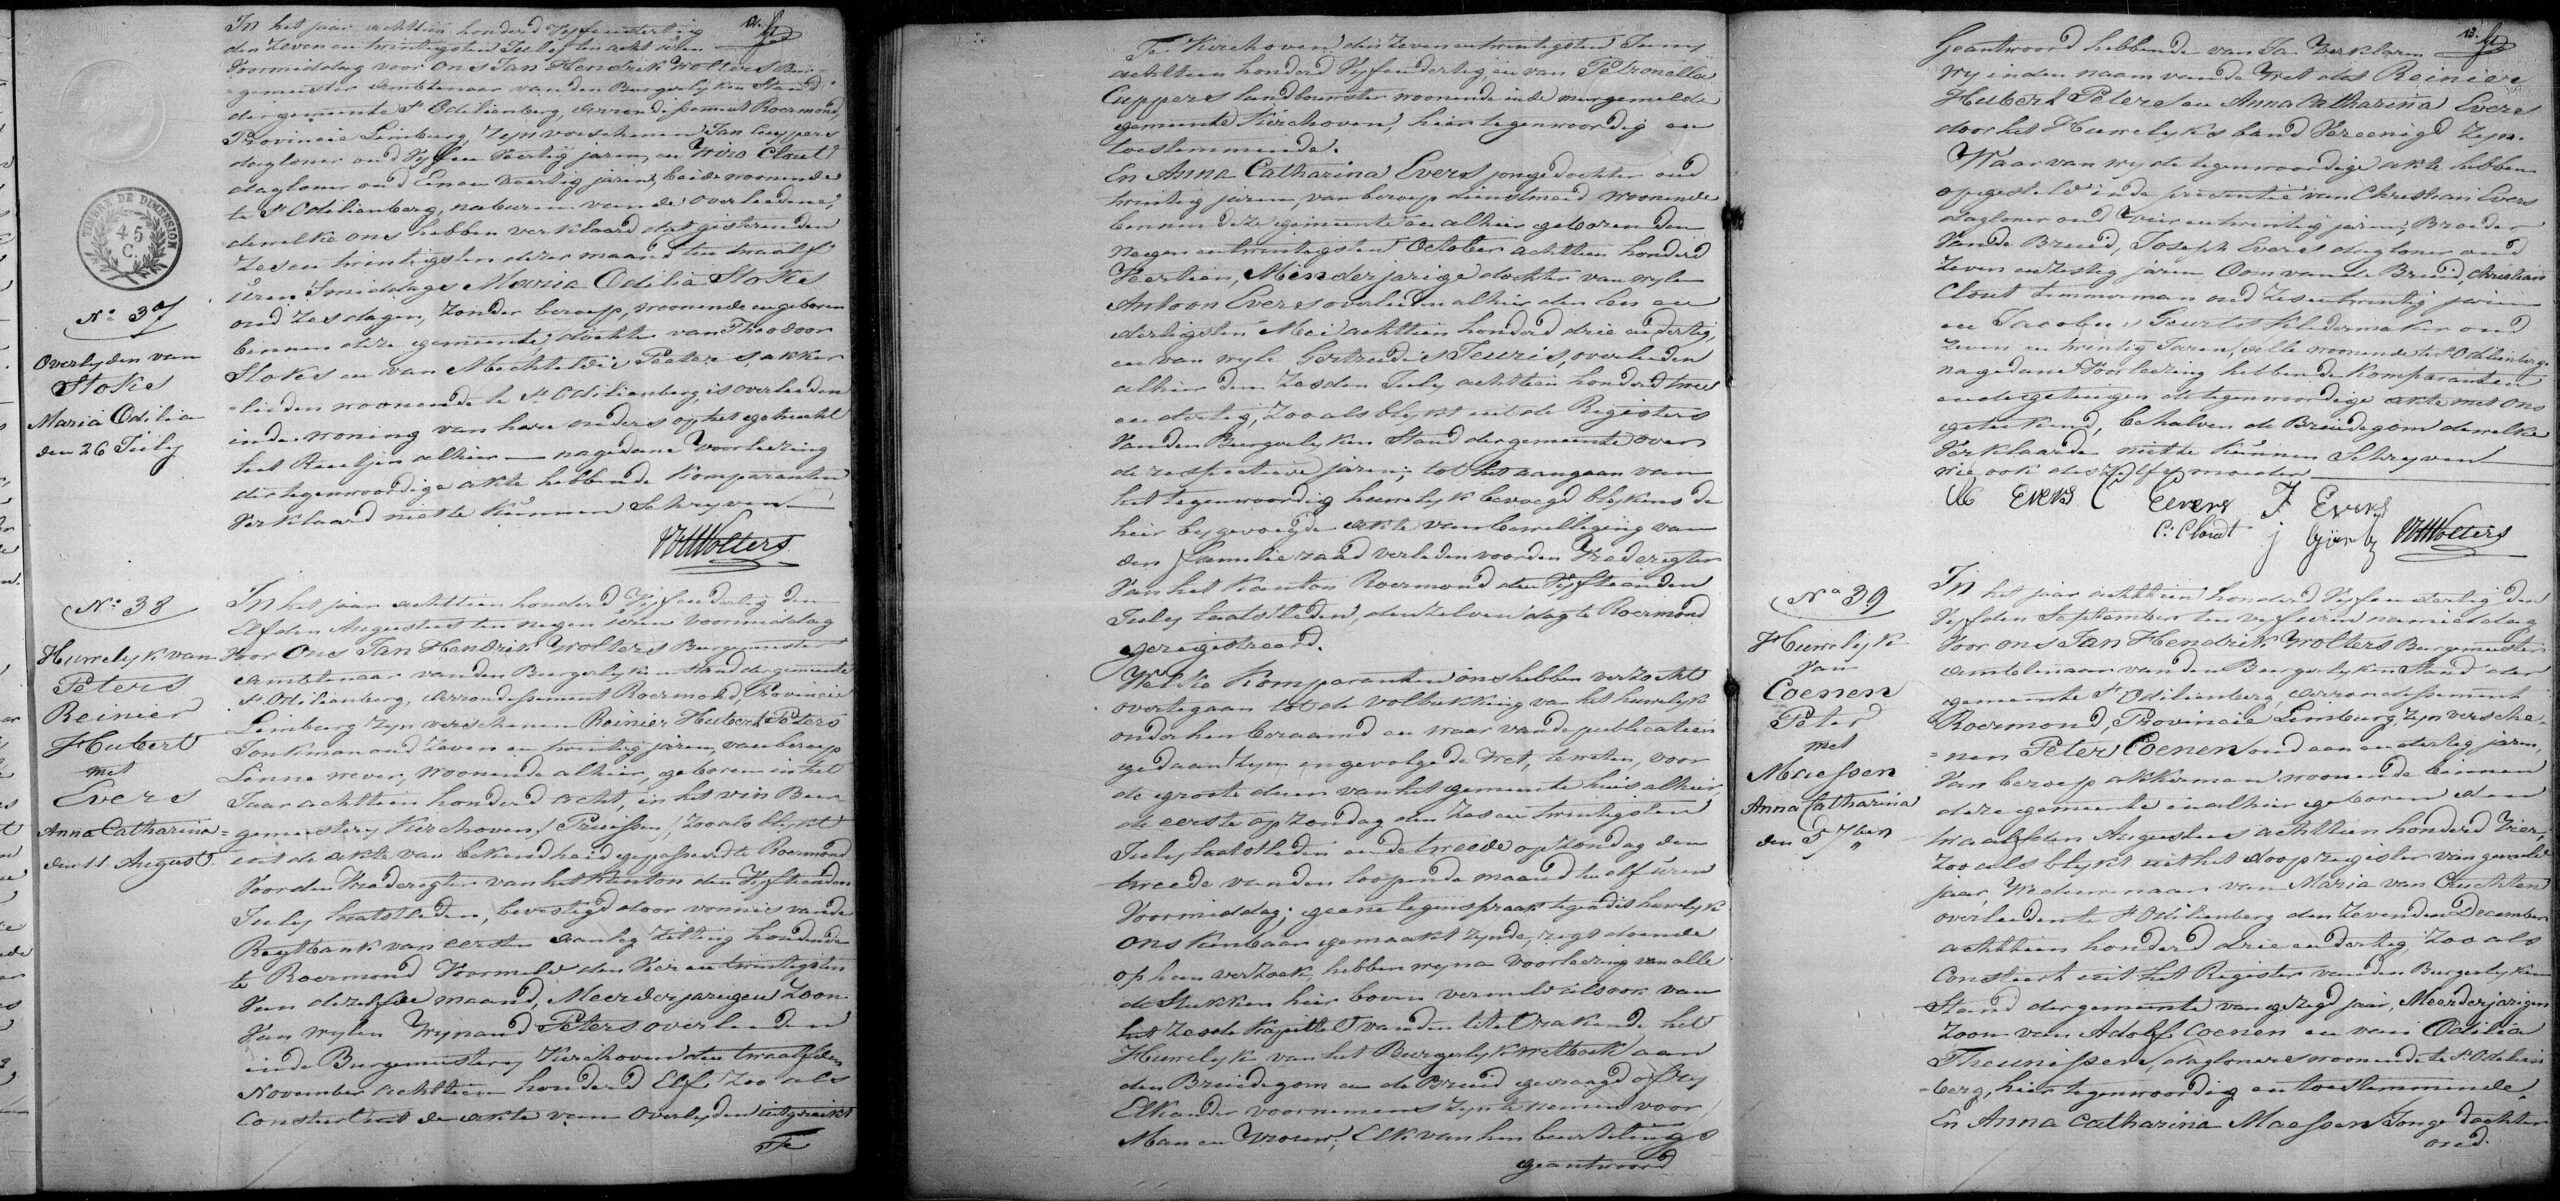 12.
In het jaar achttien honderd Vyfendertig
den zeven en twintigsten July ten acht uren
Voormiddag voor Ons Jan Hendrik Wolters Bur-
=gemeester Ambtenaar van den Burgerlyken Stand
der gemeente St Odilienberg, Arrondissement Roermond,
Provincie Limburg, zyn verschenen Jan Cuypers
dagloner oud Vyf en Veertig jaren, en Wiro Clout
dagloner oud Een en Veertig jaren, beide woonende
te St Odilienberg, naburen van de Overledene,
dewelke ons hebben verklaard dat gisteren den
Zes en twintigsten dezer maand ten twaalf
uren Smiddags Maria Odilia Stoks
oud Zes dagen, zonder beroep, woonende en geboren
binnen deze gemeente, dochter van Theodoor
Stoks en van Mechtildis Peeters, akker
=lieden woonende te St Odilienberg is overleeden
in de woning van hare ouders op het gehucht
het Reutjen alhier — na gedane Voorleezing
der tegenwoordige akte hebbende Komparanten
Verklaard niet te kunnen Schryven
JHWolters
TIMBRE DE DIMENSION
45
C.
No 37
Overlyden van
Stoks
Maria Odilia
den 26 July
No 38
Huwelyk van
Peters
Reinier
Hubert
met
Evers
Anna Catharina
den 11. August.
In het jaar achttien honderd Vyfendertig den
Elfden Augustus ten negen uren voormiddag
Voor Ons Jan Hendrik Wolters Burgemeester
Ambtenaar van den Burgerlyken Stand der gemeente
St Odilienberg, Arrondissement Roermond, Provincie
Limburg zyn verschenen Reinier Hubert Peters
Jonkman oud Zeven en twintig jaren, van beroep
Linne wever, woonende alhier, geboren in het
Jaar achttien honderd acht, in het vin Bur-
=gemeistery Kirchoven, (Pruissen) Zoo als blykt
uit de akte van bekendheid gepasseerd te Roermond
Voor den Vrederegter van het Kanton den Vyftienden
July laatstleden, bevestigd door vonnis van de
Regtbank van eersten aanleg Zitting houdende
te Roermond Voormeld den Vier en twintigsten
Van dezelfde maand, Meerderjarigen Zoon
Van wylen Wynand Peters overleeden
in de Burgemeistery Kirchoven den twaalfden
November achttien honderd Elf Zoo als
Consteert uit de akte van Overlyden uitgereikt
Te
Te Kirchoven den zeven en twintigsten Juny
achttien honderd Vyfendertig, en van Petronella
Cuppers landbouwster woonende in de voorgemelde
gemeente Kirchoven, hier tegenwoordig en
toestemmende.
En Anna Catharina Evers jonge dochter oud
twintig jaren, van beroep dienstmeid woonende
binnen deze gemeente en alhier geboren den
Negen en twintigsten October achttien honderd
Veertien, Minderjarige dochter van wylen
Antoon Evers overleden alhier den Een en
dertigsten Mei achttien honderd drie en dertig,
en van wyle Gertrudis Teuris, overleeden
alhier den Zesden July achttien honderd twee
en dertig, Zoo als blykt uit de Registers
Van den Burgerlyken Stand der gemeente over
de respective jaren; tot het aangaan van
het tegenwoordig huwelyk bevoegd blykens de
hier bygevoegde akte van bewilliging van
den familieraad verleden voor den Vrederegter
Van het Kanton Roermond den Vyftienden
July laatstleden, den zelven dag te Roermond
geregistreerd.
Welke Komparanten ons hebben verzocht
overtegaan tot de voltrekking van het huwelyk
onder hen beraamd en waar van de publicatien
gedaan zyn ingevolge de Wet, te weten, voor
de groote deur van het gemeente huis alhier,
de eerste op zondag den Zes en twintigsten
July laatstleden en de tweede op zondag den
tweede van den loopende maand te elf uren
Voormiddag; geene tegenspraak tegen dit huwelyk
Ons kenbaar gemaakt zynde, regt doende
op hun verzoek, hebben wy na voorleezing van alle
de Stukken hier boven vermeld als ook van
het Zesde Kapittel van den titel rakende het
Huwelyk van het Burgerlyk wetboek aan
den Bruidegom en de Bruid gevraagd of zy
Elkander voornemens zyn te nemen voor
Man en Vrouw; Elk van hen beurtelings
geantwoord
13.
Geantwoord hebbende van Ja Verklaren
Wy in den naam van de Wet dat Reinier
Hubert Peters en Anna Catharina Evers
door het Huwelyks band Vereenigd zyn.
Waar van wy de tegenwoordige akte hebben
opgesteld in de presentie van Christian Evers
dagloner oud Vier en twintig jaren, Broeder
Van de Bruid, Joseph Evers dagloner oud
Zeven en Zestig jaren Oom van de Bruid, Christian
Clout timmerman oud Zes en twintig jaren
en Jacobus Geurts Kledermaker oud
Zeven en twintig Jaren, alle woonende te St Odilienberg
na gedane Voorleezing hebbende Komparanten
en de getuigen de tegenwoordige akte met ons
getekend, behalven de Bruidegom dewelke
Verklaarde niet te kunnen Schryven
wie ook deszelfs moeder
AC Evers C Eevers J Evers
C: Cloudt j Gjurtz JHWolters
No 39
Huwelyk
Van
Coenen
Peter
met
Maessen
Anna Catharina
den 5 7ber
In het jaar achttien honderd Vyfendertig den
Vyfden September ten vyf uren namiddag
Voor ons Jan Hendrik Wolters Burgemeester
Ambtenaar van den Burgerlyken Stand der
gemeente St Odilienberg, Arrondissement
Roermond, Provincie Limburg, zyn versche-
=nen Peter Coenen oud een en dertig jaren,
Van beroep akkerman woonende binnen
deze gemeente en alhier geboren den
twaalfden Augustus achttien honderd Vier,
Zoo als blykt uit het doopregister van gemeld
jaar, Weduwnaar van Maria van Cruchten
overleeden te St Odilienberg den Zevenden December
achttien honderd drie en dertig, Zoo als
Consteert uit het Register van den Burgerlyken
Stand der gemeente van gezegd jaar, Meerderjarigen
Zoon van Adolf Coenen en van Odilia
Theunissen, dagloners woonende te St Odilien
=berg, hier tegenwoordig en toestemmende,
En Anna Catharina Maessen Jonge dochter
oud